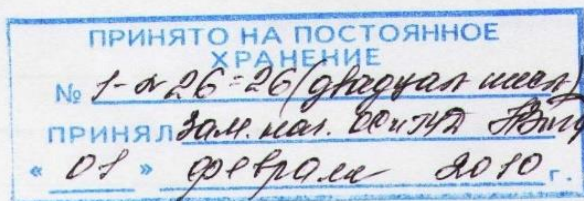 ПРИНЯТО НА ПОСТОЯННОЕ
ХРАНЕНИЕ
№ 1-26=26 (двадцать шест)
ПРИНЯЛ Зам. нач.
« 01 » февраля 2010 г.